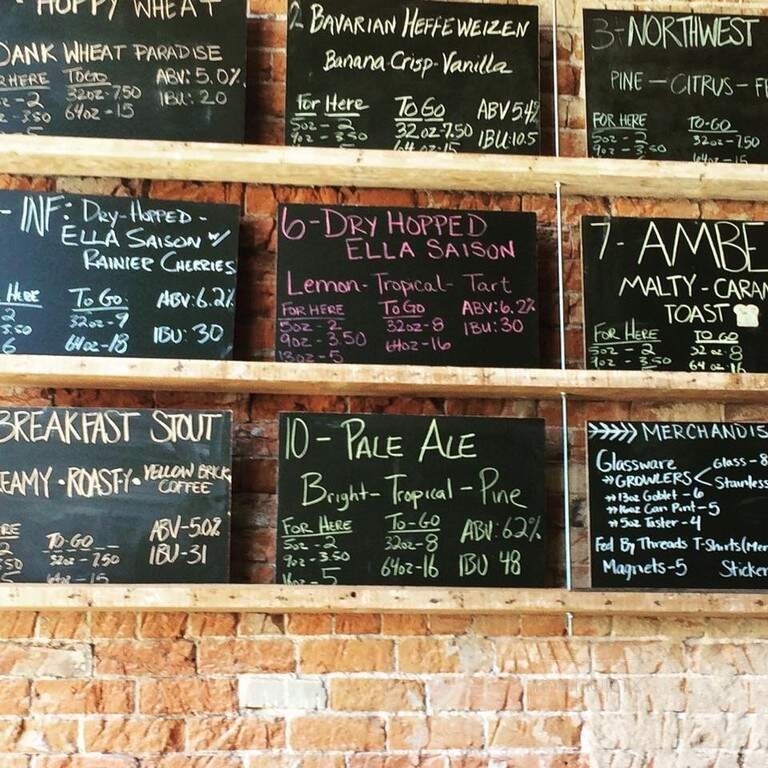 HOPPY WHEAT
DANK WHEAT PARADISE
HERE TOGO ABV: 5.0%
-2 32oz-750 IBU: 20
-3.50 64oz-15
2 BAVARIAN HEFFEWEIZEN
Banana-Crisp-Vanilla
For Here To Go ABV 5.4%
5oz - 2 32oz-7.50 IBU:10.5
9oz - 3.50 64oz-15
3-NORTHWEST
PINE-CITRUS-
FOR HERE TO-GO
5oz - 2 32oz-7.50
9oz - 3.50 64oz-15
-INF: DRY-HOPPED-
ELLA SAISON W/
RAINIER CHERRIES
HERE To Go ABV:6.2%
2 32oz-9
3.50 64oz-18 IBU: 30
6
6-DRY HOPPED
ELLA SAISON
Lemon-Tropical-Tart
FOR HERE TO GO ABV:6.2%
5oz-2 32oz-8 IBU:30
9oz-3.50 64oz-16
13oz-5
7-AMBE
MALTY-CARAM
TOAST
FOR HERE TO GO
5oz - 2 32oz-8
9oz - 3.50 64oz-16
BREAKFAST STOUT
EAMY·ROASTY·YELLOW BRICK
COFFEE
ABV-5.0%
TO-GO
2 32oz-7.50 IBU-31
.50 64oz-15
5
10-PALE ALE
Bright-Tropical-Pine
FOR HERE TO-GO ABV:6.2%
5oz-2 32oz-8
9oz-3.50 64oz-16 IBU 48
16oz-5
>>>>> MERCHANDIS
Glassware
→GROWLERS < Glass-8
Stainless
→13oz Goblet-6
→16oz Can Pint-5
→5oz Taster-4
Fed By Threads T-Shirts(Men
Magnets-5 Sticker